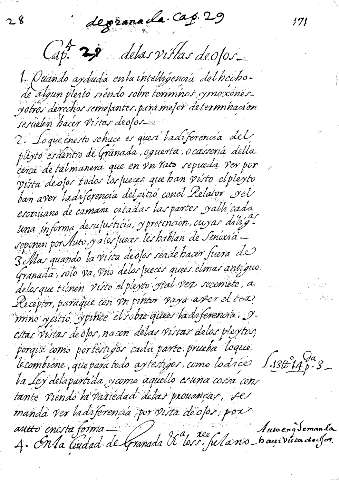 28 de granada cap. 29 171
Cap. 29 de las vistas de ojos
1. Quando ay duda en la intelligencia del hecho
de algun pleito siendo sobre terminos, y mojones
y otros derechos semejantes, para mejor determinaçon
se suelen hacer vistas de ojos.
2. Lo que en esto se hace es que si la diferencia del
pleyto es dentro de Granada, o guerta, o caseria della
cerca de tal manera que en un rato se pueda ver por
vista de ojos todos los jueces que han visto el pleyto
ban a ver la diferencia del sitio con el Relator y el
escrivano de camara çitadas las partes y alli cada
una informa de su justicia, y pretencion, cuyas
se ponen por Auto, y alos jueces les hablan de Señoria
3. Mas quando la vista de ojos se ha de hacer fuera de
Granada, solo va, uno de los jueces que es el mas antiguo
de los que tienen visto el pleyto, y tal vez se comete, a
Receptor, para que con un pintor vaya a ver el ter
mino y sitio, y pinte el sobre que es la diferencia. y
estas vistas de ojos, nacen de las vistas de los pleytos,
porque como por testigos cada parte prueba lo que
le combiene, que para todo ay testigos, como lo dice
la Ley de la partida, y como aquello es una cosa con
tante viendo la variedad de las provanças, se
manda ver la diferencia por vista de ojos; por
auto en esta forma
4. En la ciudad de Granada fulano
Auto en q. se manda
hacer vista de ojos.